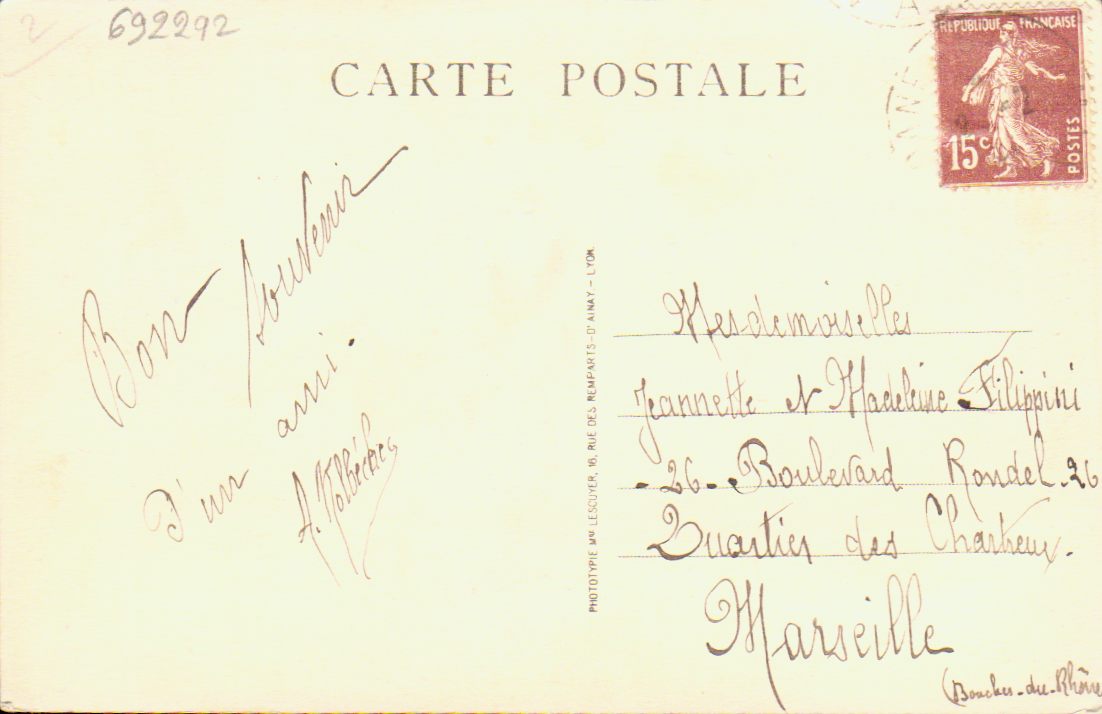 692292
CARTE POSTALE
RÉPUBLIQUE FRANÇAISE
15c
POSTES
Bon souvenir
d'un ami.
PHOTOTYPIE Mme LESCUYER, 16, RUE DES REMPARTS-D'AINAY - LYON
Mesdemoiselles
Jeannette et Madeleine Filippini
-26- Boulevard Rondel. 26
Quartier des Chartreux.
Marseille
(Bouches-du-Rhône